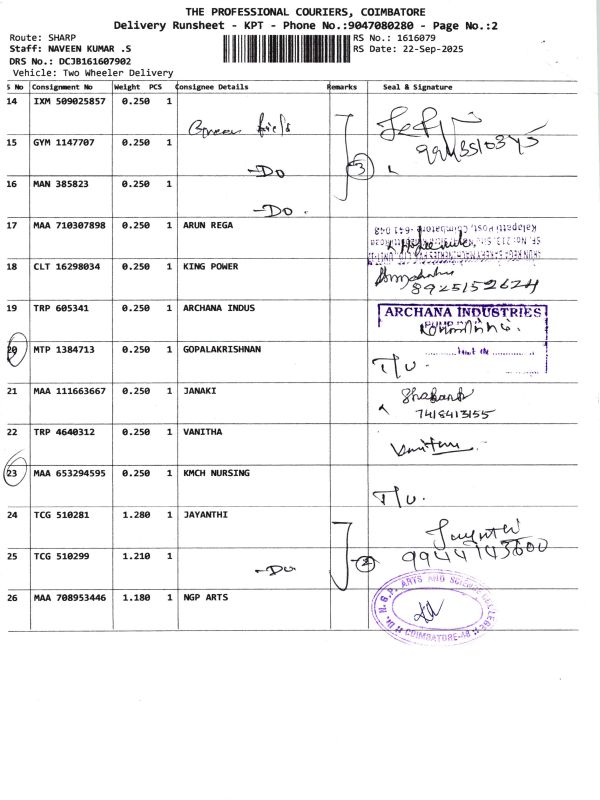 THE PROFESSIONAL COURIERS, COIMBATORE
Delivery Runsheet - KPT - Phone No.:9047080280 - Page No.:2
Route: SHARP
RS No.: 1616079
Staff: NAVEEN KUMAR .S
RS Date: 22-Sep-2025
DRS No.: DCJB161607902
Vehicle: Two Wheeler Delivery
S No Consignment No Weight PCS Consignee Details Remarks Seal & Signature
14 IXM 509025857 0.250 1
15 GYM 1147707 0.250 1
-Do
3
16 MAN 385823 0.250 1
-Do.
17 MAA 710307898 0.250 1 ARUN REGA
Kalapatti Post, Coimbatore-641 048
18 CLT 16298034 0.250 1 KING POWER
8925152624
19 TRP 605341 0.250 1 ARCHANA INDUS
ARCHANA INDUSTRIES
20 MTP 1384713 0.250 1 GOPALAKRISHNAN
T/U.
21 MAA 111663667 0.250 1 JANAKI
7418413155
22 TRP 4640312 0.250 1 VANITHA
23 MAA 653294595 0.250 1 KMCH NURSING
T/U.
24 TCG 510281 1.280 1 JAYANTHI
9944143600
25 TCG 510299 1.210 1
-Do
2
26 MAA 708953446 1.180 1 NGP ARTS
Dr. N.G.P. ARTS AND SCIENCE COLLEGE
COIMBATORE-48